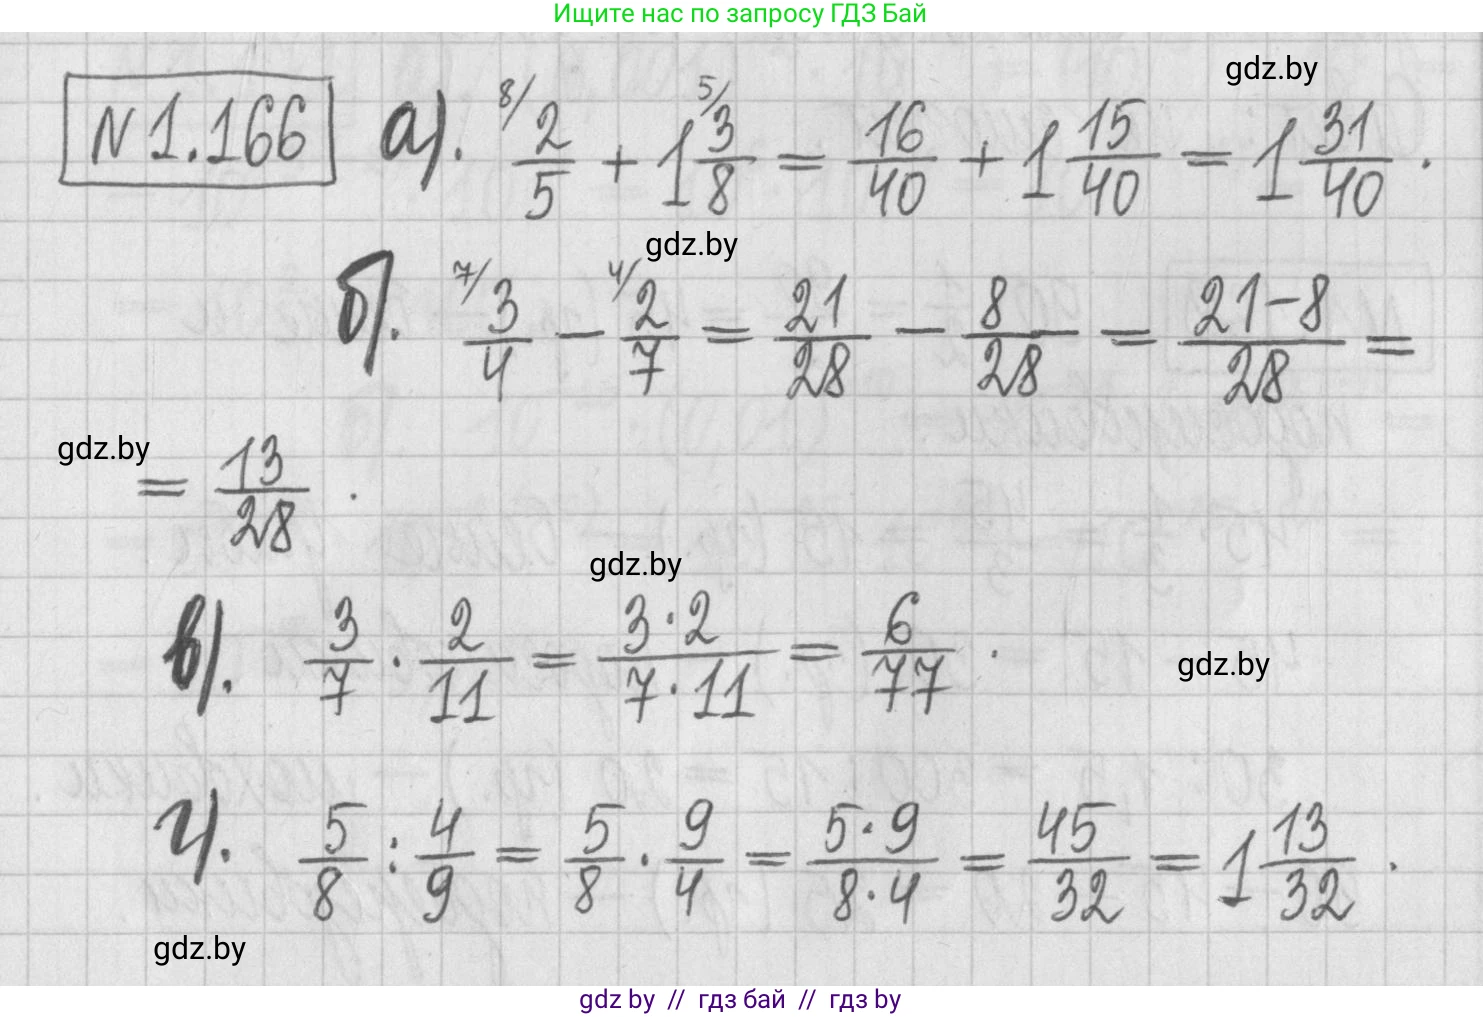 Ищите нас по запросу ГДЗ Бай
gdz.by
№ 1.166 а). 8/ 2/5 + 1 5/ 3/8 = 16/40 + 1 15/40 = 1 31/40 .
gdz.by
б). 7/ 3/4 − 4/ 2/7 = 21/28 − 8/28 = 21−8/28 =
gdz.by
= 13/28 .
gdz.by
в). 3/7 · 2/11 = 3·2/7·11 = 6/77 .
gdz.by
г). 5/8 : 4/9 = 5/8 · 9/4 = 5·9/8·4 = 45/32 = 1 13/32 .
gdz.by
gdz by // гдз бай // гдз by